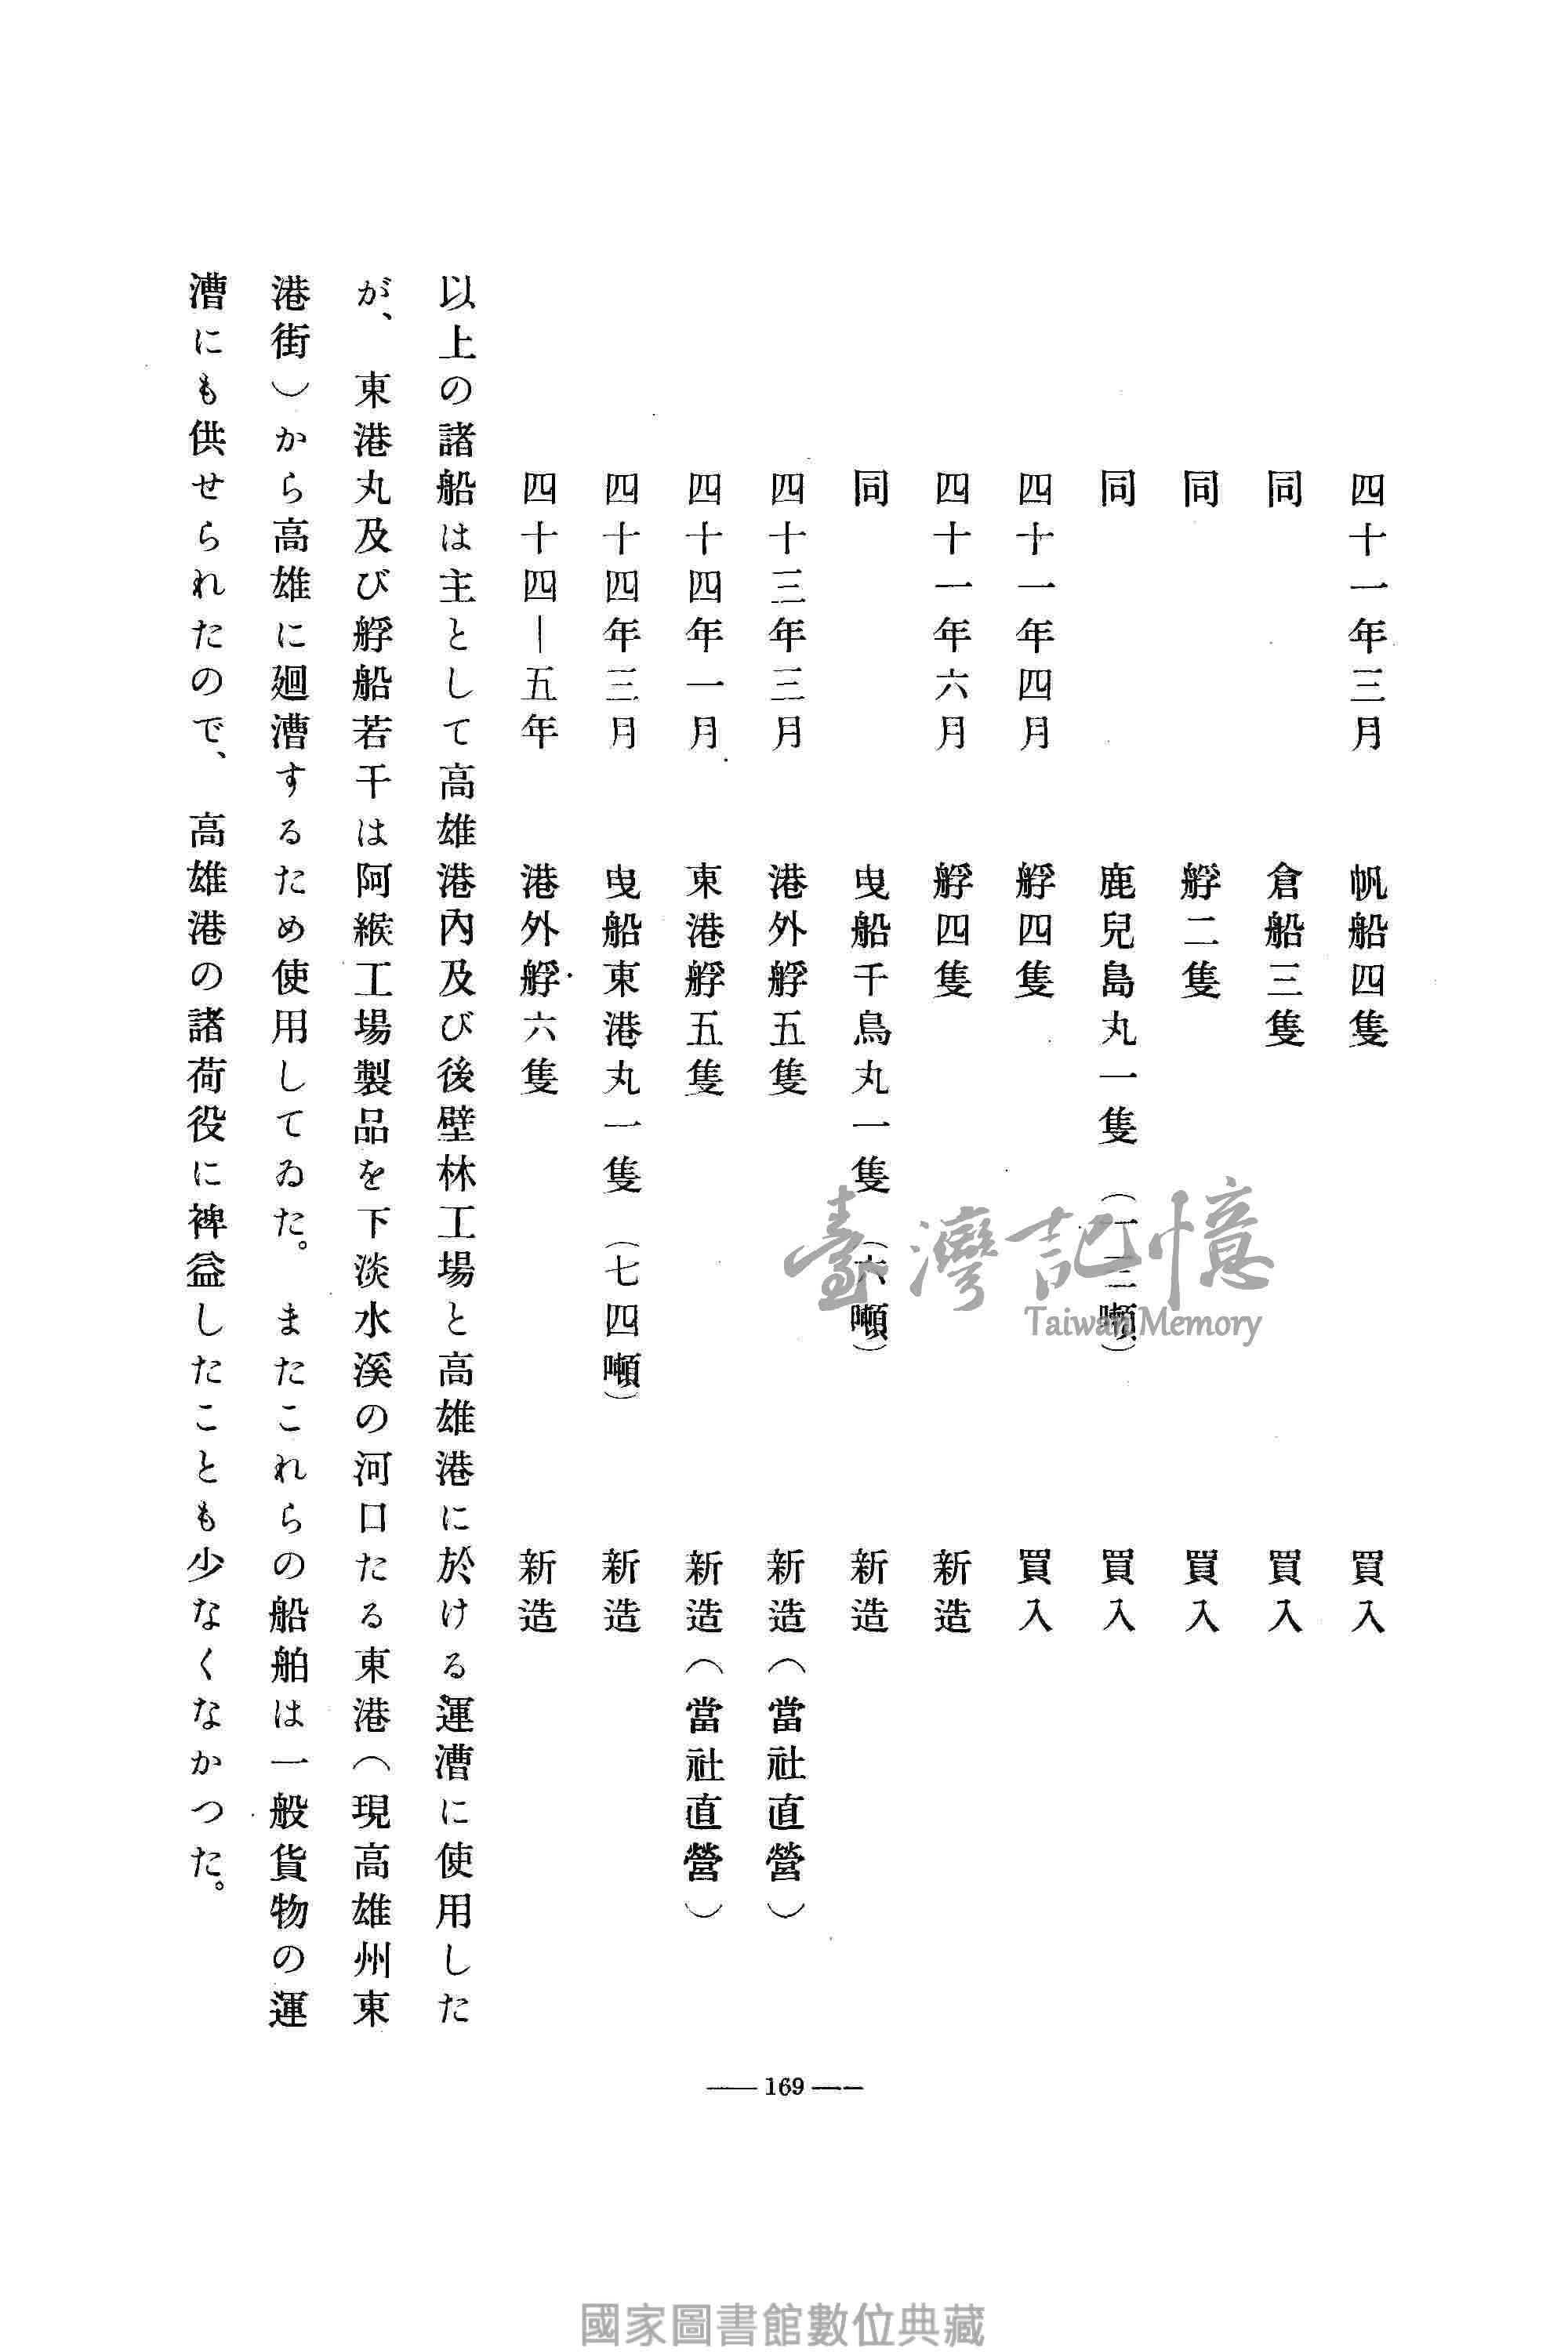 四十一年三月　帆船四隻　買入
同　倉船三隻　買入
同　艀二隻　買入
同　鹿兒島丸一隻（一三噸）　買入
四十一年四月　艀四隻　買入
四十一年六月　艀四隻　新造
同　曳船千鳥丸一隻（六噸）　新造
四十三年三月　港外艀五隻　新造（當社直營）
四十四年一月　東港艀五隻　新造（當社直營）
四十四年三月　曳船東港丸一隻（七四噸）　新造
四十四―五年　港外艀六隻　新造
以上の諸船は主として高雄港內及び後壁林工場と高雄港に於ける運漕に使用した
が、東港丸及び艀船若干は阿緱工場製品を下淡水溪の河口たる東港（現高雄州東
港街）から高雄に廻漕するため使用してゐた。またこれらの船舶は一般貨物の運
漕にも供せられたので、高雄港の諸荷役に裨益したことも少なくなかつた。
— 169 —
臺灣記憶
Taiwan Memory
國家圖書館數位典藏